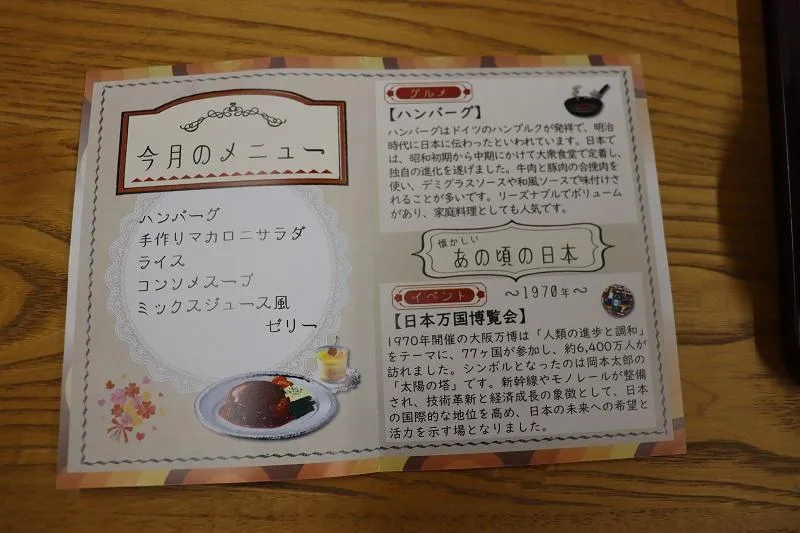 今月のメニュー
ハンバーグ
手作りマカロニサラダ
ライス
コンソメスープ
ミックスジュース風
ゼリー
グルメ
【ハンバーグ】
ハンバーグはドイツのハンブルクが発祥で、明治
時代に日本に伝わったといわれています。日本で
は、昭和初期から中期にかけて大衆食堂で定着し、
独自の進化を遂げました。牛肉と豚肉の合挽肉を
使い、デミグラスソースや和風ソースで味付けさ
れることが多いです。リーズナブルでボリューム
があり、家庭料理としても人気です。
懐かしい
あの頃の日本
イベント
～1970年～
【日本万国博覧会】
1970年開催の大阪万博は「人類の進歩と調和」
をテーマに、77ヶ国が参加し、約6,400万人が
訪れました。シンボルとなったのは岡本太郎の
「太陽の塔」です。新幹線やモノレールが整備
され、技術革新と経済成長の象徴として、日本
の国際的な地位を高め、日本の未来への希望と
活力を示す場となりました。